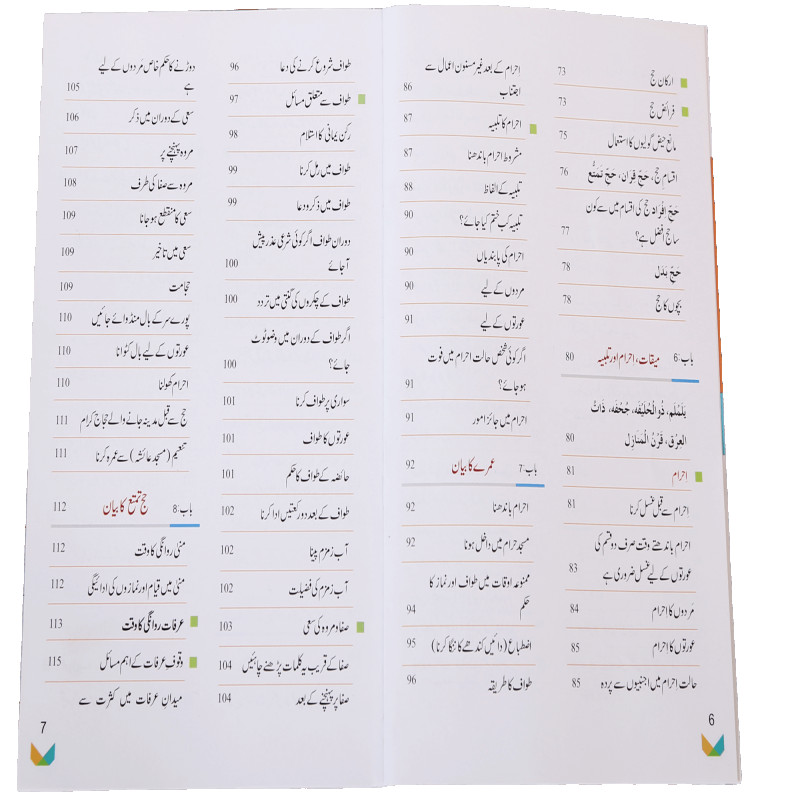 ارکان حج 73
فرائض حج 73
مانع حیض گولیوں کا استعمال 75
اقسام حج، حَجّ قِرَان، حَج تَمَتُّع 76
حَجّ اِفْرَاد حج کی اقسام میں سے کون
سا حج افضل ہے؟ 77
حَجّ بَدَل 78
بچوں کا حج 78
باب:6 میقات، احرام اور تلبیہ 80
یَلَمْلَم، ذُو الْحُلَیْفَہ، جُحْفَہ، ذَاتُ
العِرْق، قَرْنُ الْمَنَازِل 80
احرام 81
احرام سے قبل غسل کرنا 81
احرام باندھتے وقت صرف دو قسم کی
عورتوں کے لیے غسل ضروری ہے 83
مردوں کا احرام 84
عورتوں کا احرام 85
حالت احرام میں اجنبیوں سے پردہ 85
احرام کے بعد غیر مسنون اعمال سے
اجتناب 86
احرام کا تلبیہ 87
مشروط احرام باندھنا 87
تلبیہ کے الفاظ 88
تلبیہ کب ختم کیا جائے؟ 90
احرام کی پابندیاں 90
مردوں کے لیے 90
عورتوں کے لیے 91
اگر کوئی شخص حالت احرام میں فوت
ہو جائے؟ 91
احرام میں جائز امور 91
باب:7 عمرے کا بیان 92
احرام باندھنا 92
مسجد حرام میں داخل ہونا 92
ممنوعہ اوقات میں طواف اور نماز کا
حکم 94
اضطباع (دائیں کندھے کا ننگا کرنا) 95
طواف کا طریقہ 96
6
طواف شروع کرنے کی دعا 96
طواف سے متعلق مسائل 97
رکن یمانی کا استلام 98
طواف میں رمل کرنا 99
طواف میں ذکر و دعا 99
دوران طواف اگر کوئی شرعی عذر پیش
آجائے 100
طواف کے چکروں کی گنتی میں تردد 100
اگر طواف کے دوران میں وضو ٹوٹ
جائے؟ 100
سواری پر طواف کرنا 101
عورتوں کا طواف 101
حائضہ کے طواف کا حکم 101
طواف کے بعد دو رکعتیں ادا کرنا 102
آب زمزم پینا 102
آب زمزم کی فضیلت 102
صفا و مروہ کی سعی 103
صفا کے قریب یہ کلمات پڑھنے چاہئیں 104
صفا پر پہنچنے کے بعد 104
دوڑنے کا حکم خاص مَردوں کے لیے
ہے 105
سعی کے دوران میں ذکر 106
مروہ پہنچنے پر 107
مروہ سے صفا کی طرف 108
سعی کا منقطع ہو جانا 109
سعی میں تاخیر 109
حجامت 109
پورے سر کے بال منڈوائے جائیں 110
عورتوں کے لیے بال کٹوانا 110
احرام کھولنا 110
حج سے قبل مدینہ جانے والے حجاج کرام 111
تنعیم (مسجد عائشہ) سے عمرہ کرنا 111
باب:8 حج تمتع کا بیان 112
منیٰ روانگی کا وقت 112
منیٰ میں قیام اور نمازوں کی ادائیگی 112
عرفات روانگی کا وقت 113
وقوف عرفات کے اہم مسائل 115
میدان عرفات میں کثرت سے
7